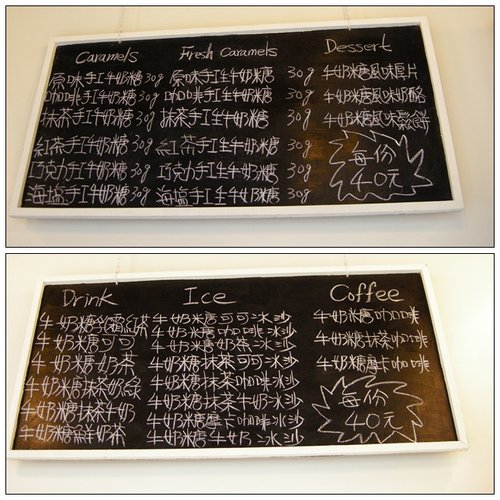 Caramels Fresh Caramels Dessert
原味手工牛奶糖 30g 原味手工生牛奶糖 30g 牛奶糖風味厚片
咖啡手工牛奶糖 30g 咖啡手工生牛奶糖 30g 牛奶糖風味奶酪
抹茶手工牛奶糖 30g 抹茶手工生牛奶糖 30g 牛奶糖風味鬆餅
紅茶手工牛奶糖 30g 紅茶手工生牛奶糖 30g 每份
巧克力手工牛奶糖 30g 巧克力手工生牛奶糖 30g 40元
海塩手工牛奶糖 30g 海塩手工生牛奶糖 30g
Drink Ice Coffee
牛奶糖紅茶 牛奶糖可可冰沙 牛奶糖咖啡
牛奶糖可可 牛奶糖咖啡冰沙 牛奶糖抹茶咖啡
牛奶糖奶茶 牛奶糖奶茶冰沙 牛奶糖摩卡咖啡
牛奶糖抹茶奶綠 牛奶糖抹茶可可冰沙 每份
牛奶糖抹茶牛奶 牛奶糖抹茶咖啡冰沙 40元
牛奶糖鮮奶茶 牛奶糖抹茶牛奶冰沙
牛奶糖摩卡咖啡冰沙
牛奶糖牛奶冰沙